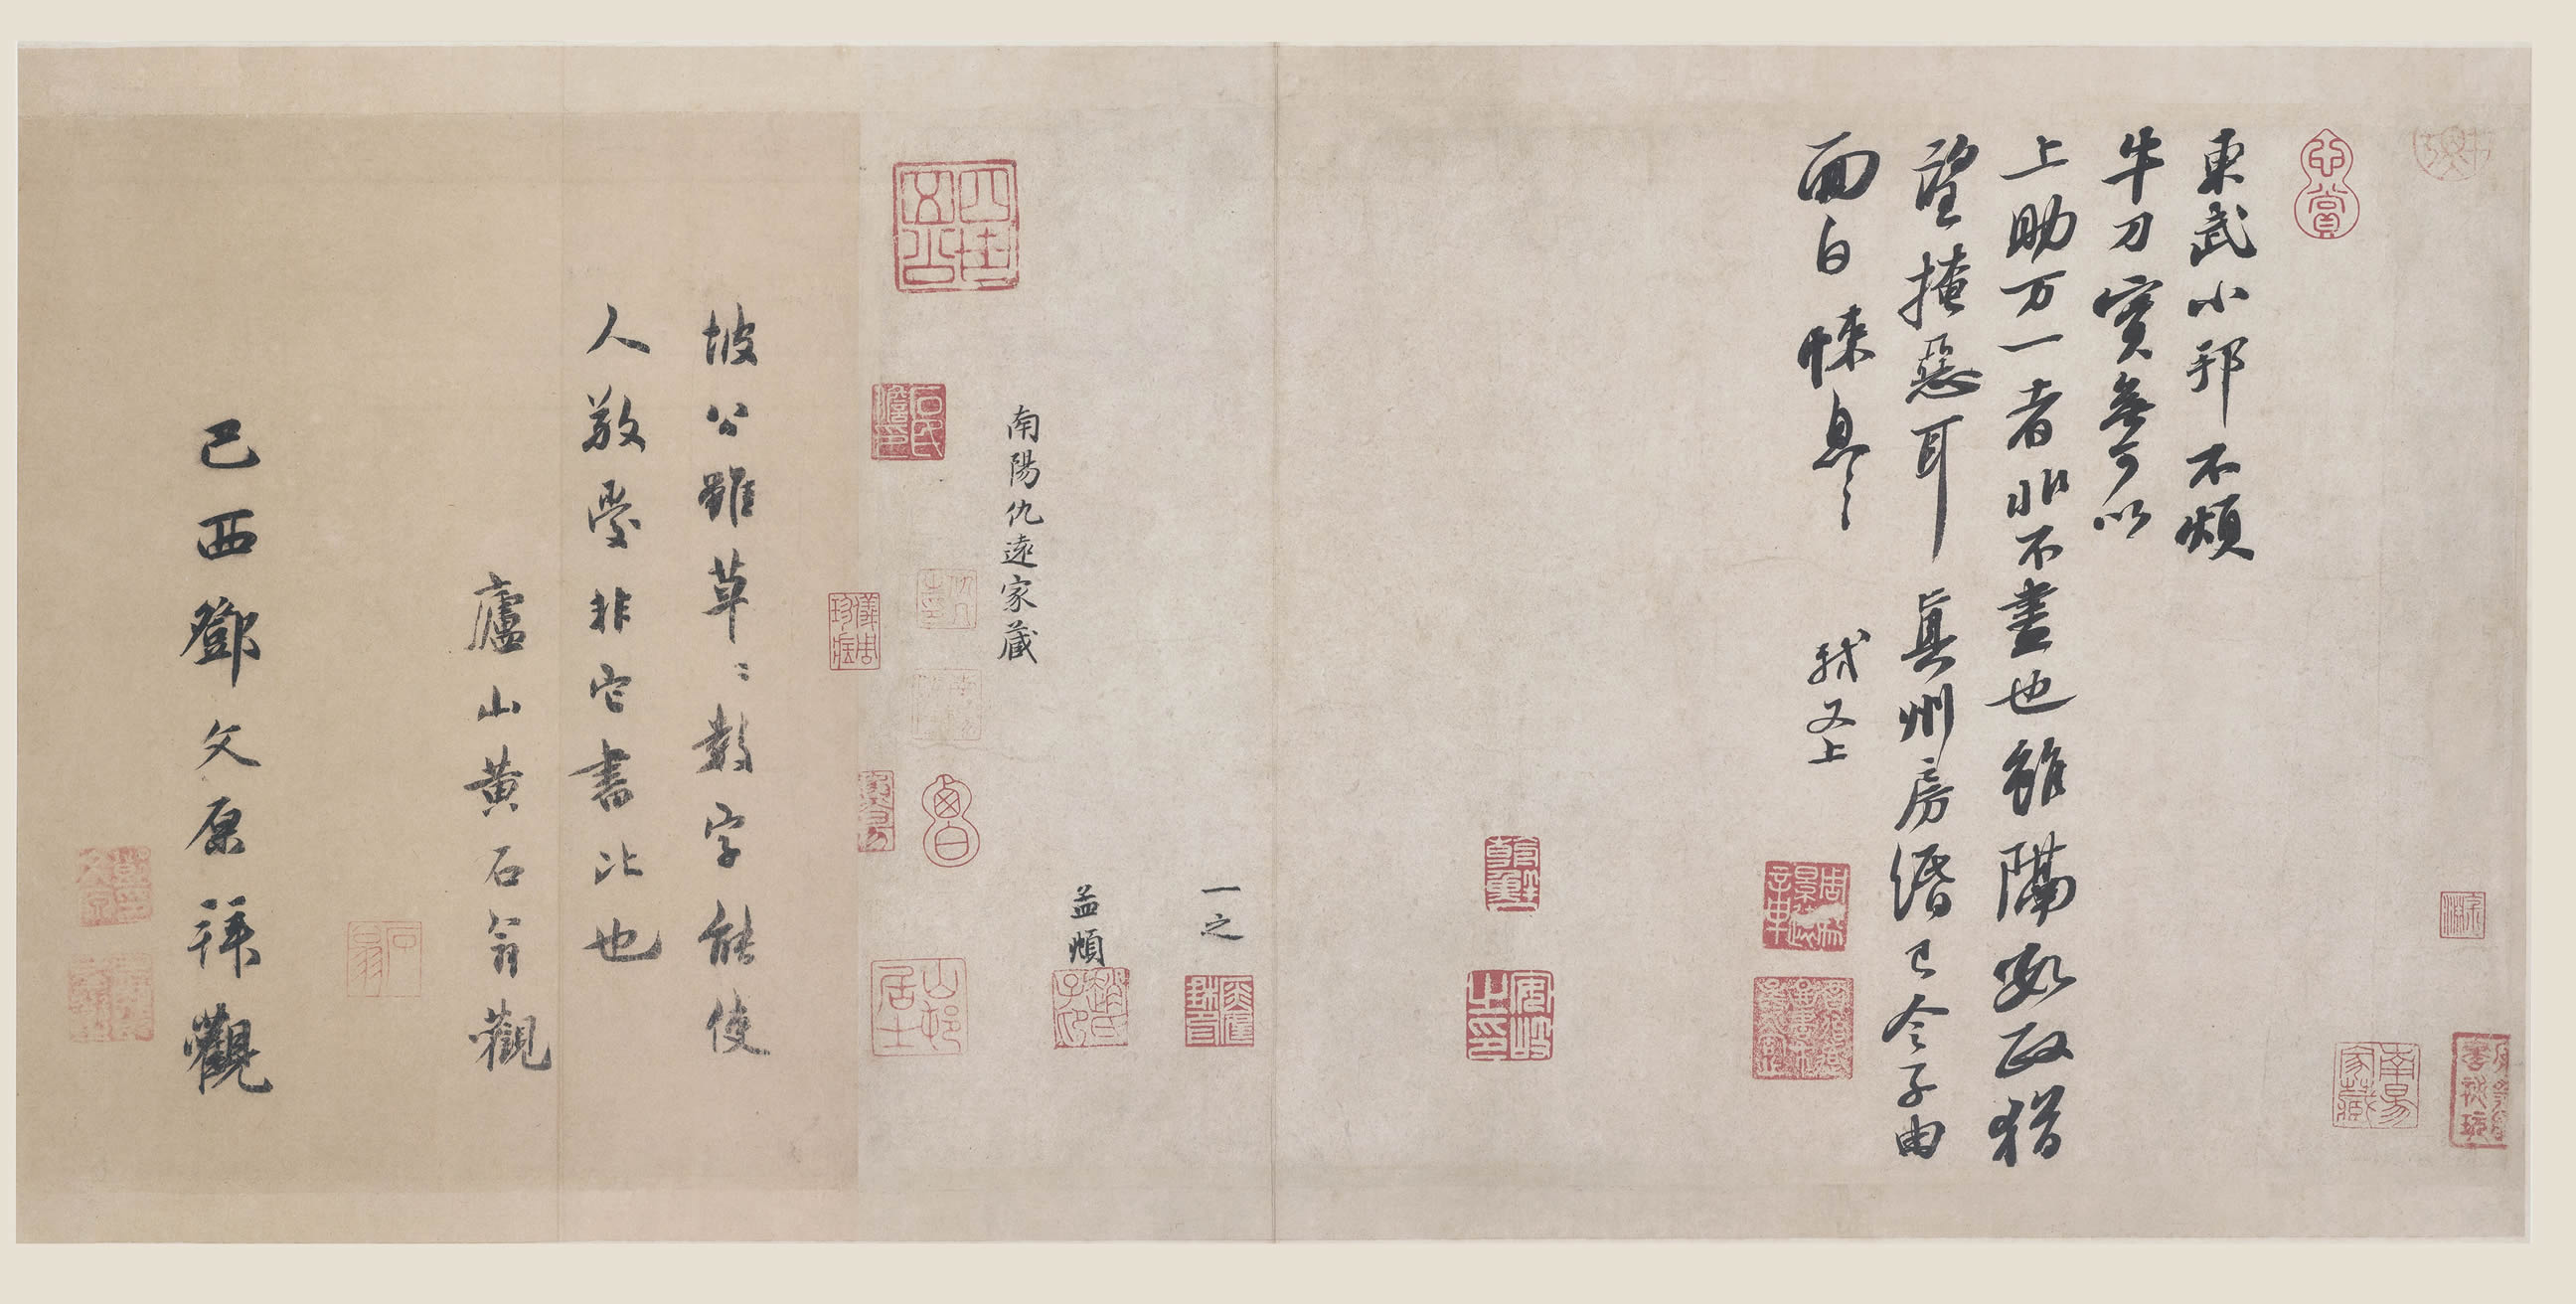 東武小邦不煩
牛刀實無可以
上助万一者非不盡也雖隔數政猶
望掩惡耳 真州房緡已令子由
面白悚息〻 軾又上
一之
益頔
南陽仇遠家藏
坡公雖草〻數字能使
人敬愛非它書比也
廬山黃石翁觀
己酉鄧文原拜觀